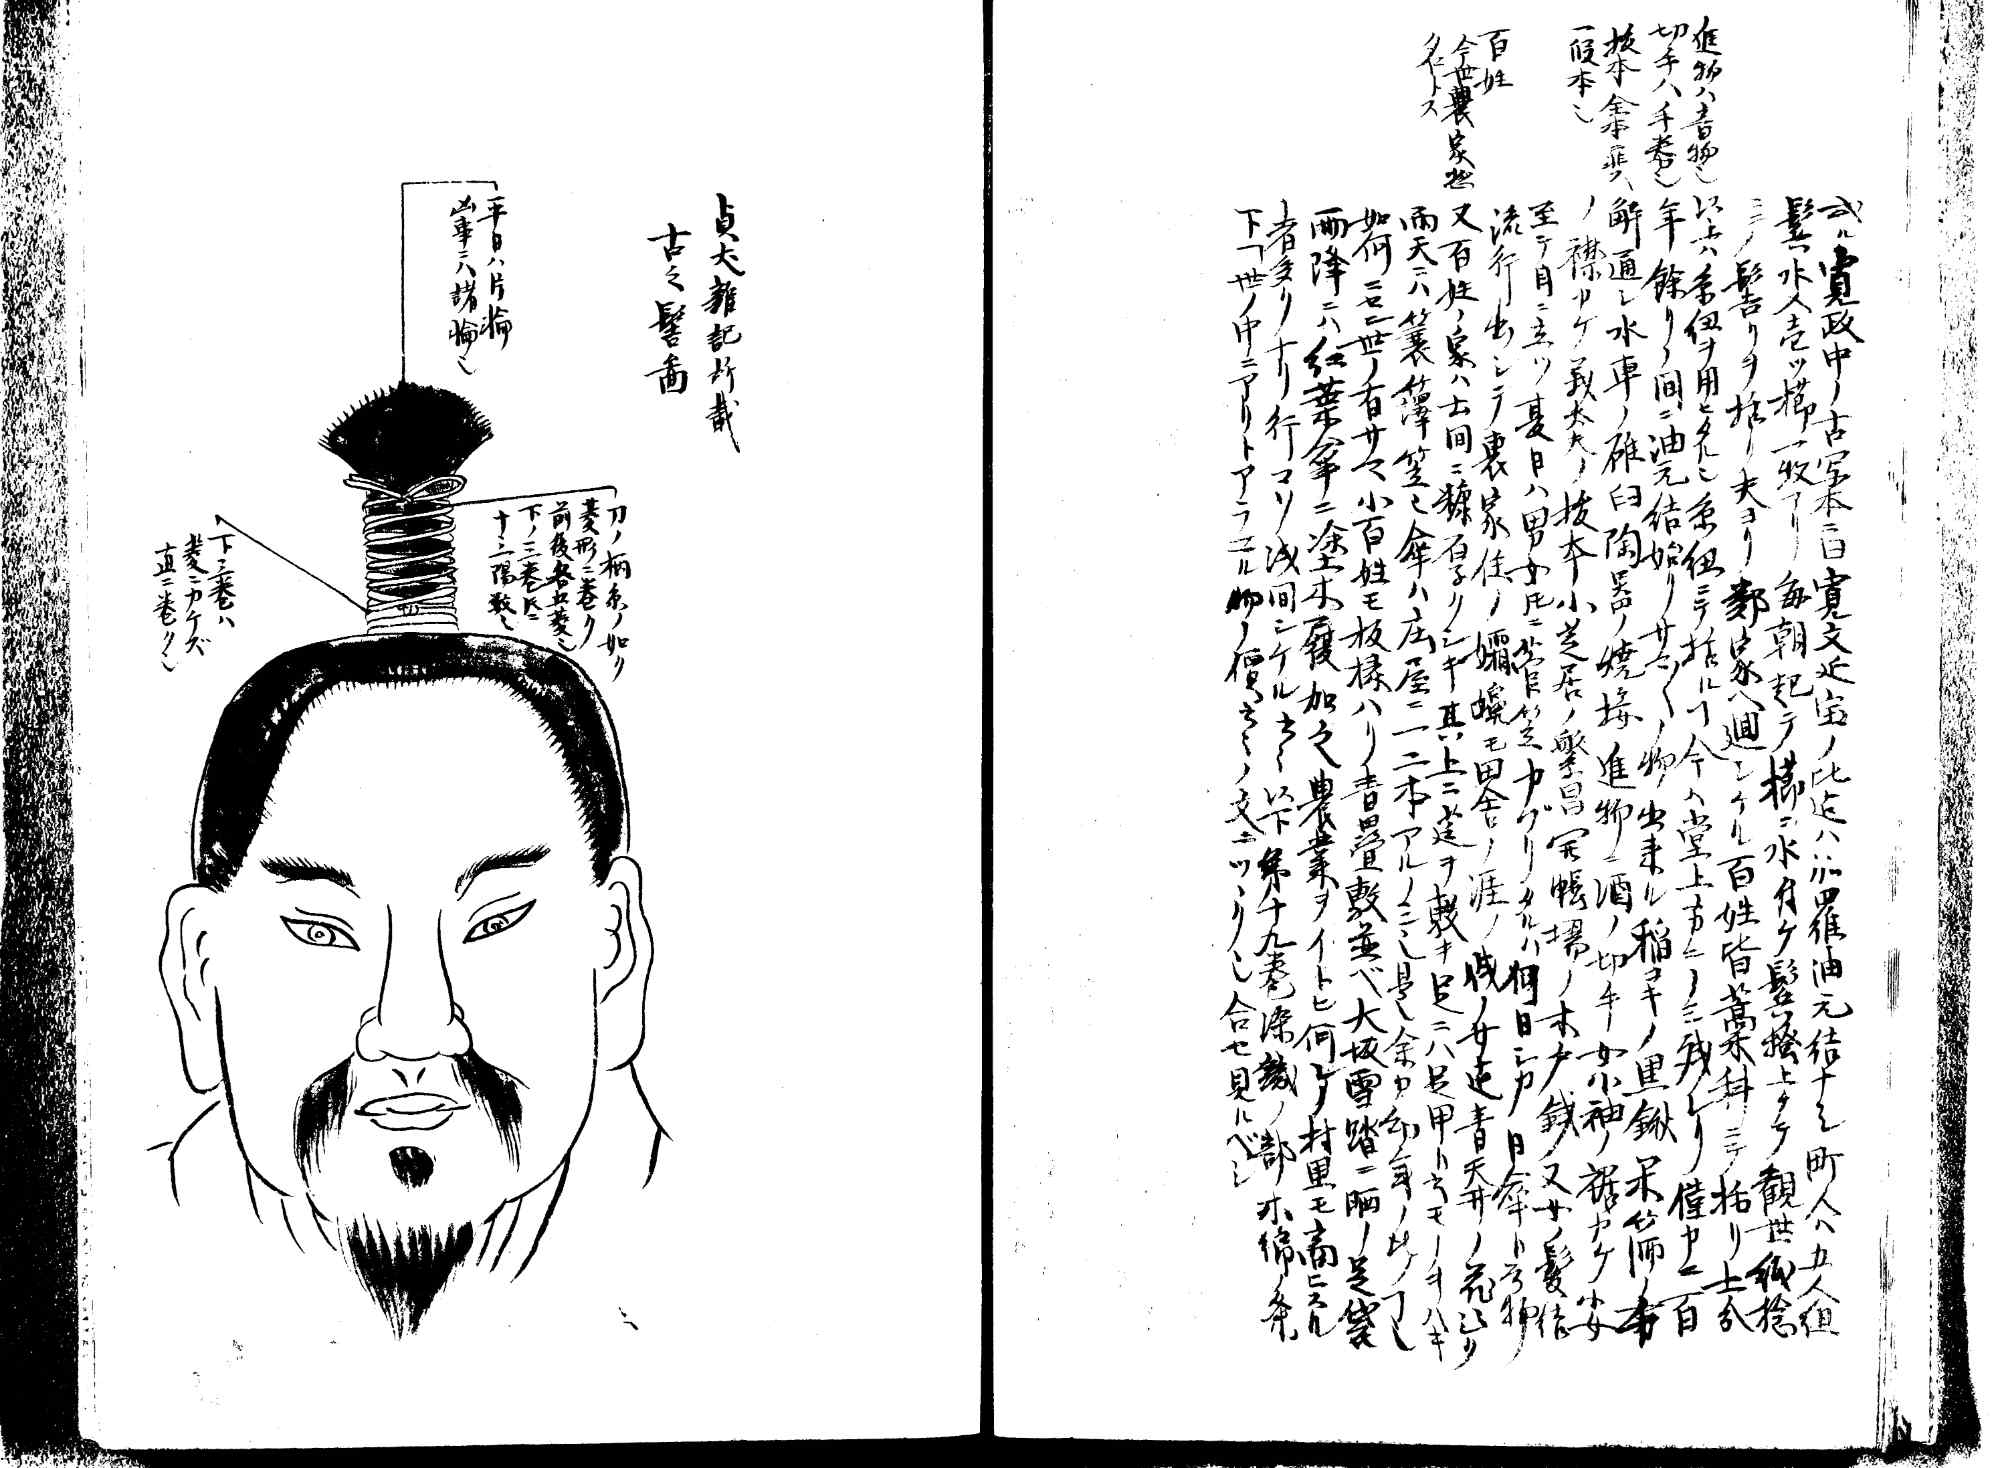 進物ハ音物也
切手ハ手巻也
抜本金本
一段本也
百姓
今世農家惣
名トス
或ル寛政中ノ古写本ニ曰寛文延宝ノ比迄ハ伽羅油元結ナシ町人ハ五人組
髪水入壱ツ櫛一枚アリ毎朝起テ櫛ニ水付ケ髪掻上ケテ観世紙捻
ニテ髻リヲ括リ夫ヨリ鄰家ヘ廻シケル百姓皆藁科ニテ括リ士分
以上ハ糸紐ヲ用ヒタル也糸紐ニテ括ルヿ今ハ堂上方ニノミ残レリ僅中ニ百
年余リノ間ニ油元結始リサマ〱ノ物出来ル稲コキノ黒鍬米篩ノ
解通シ水車ノ碓臼陶器ノ焼接進物ニ酒ノ切手女小袖ノ裾カケ少女
ノ襟カケ義太夫ノ抜本小芝居ノ繁昌冥帳場ノ木戸銭又女ノ髪結
至テ目ニ立ツ夏日ハ男女氏ニ菅笠カブリタルハ何日シカ日傘ト云物
流行出シテ裏家住ノ孀嬶モ田舎ノ涯ノ賎ノ女迄青天井ノ花ニ
又百姓ノ家ハ土間ニ糠百子リシキ其上ニ莚ヲ敷キ足ニハ足甲ト云モノヲハキ
雨天ニハ簑篛笠也傘ハ庄屋ニ一二本アルノミ也是レ余カ幼年ノ比ノヿ也
如何ニセン世ノ有サマ小百姓モ板椽ハリ青畳敷並ベ大坂雪踏ニ晒ノ足袋
雨降ニハ紅葉傘ニ塗木履加之農業ヲイトヒ何レノ村里モ商ヒスル
者多クナリ行マヽ浅間シケル云々以下第十九巻染織ノ部木綿ノ条
下ヿ世ノ中ニアリトアラユル物ノ価云々ノ文ニツヽクノ也合セ見ルベシ
貞丈雑記所載
古之髻図
平日ハ片輪
凶事ニハ諸輪也
刀ノ柄糸ノ如ク
菱形ニ巻ク
前後各五菱也
下ノ三巻氏ニ
十三陽数也
下三巻ハ
菱ニカケズ
直ニ巻ク也